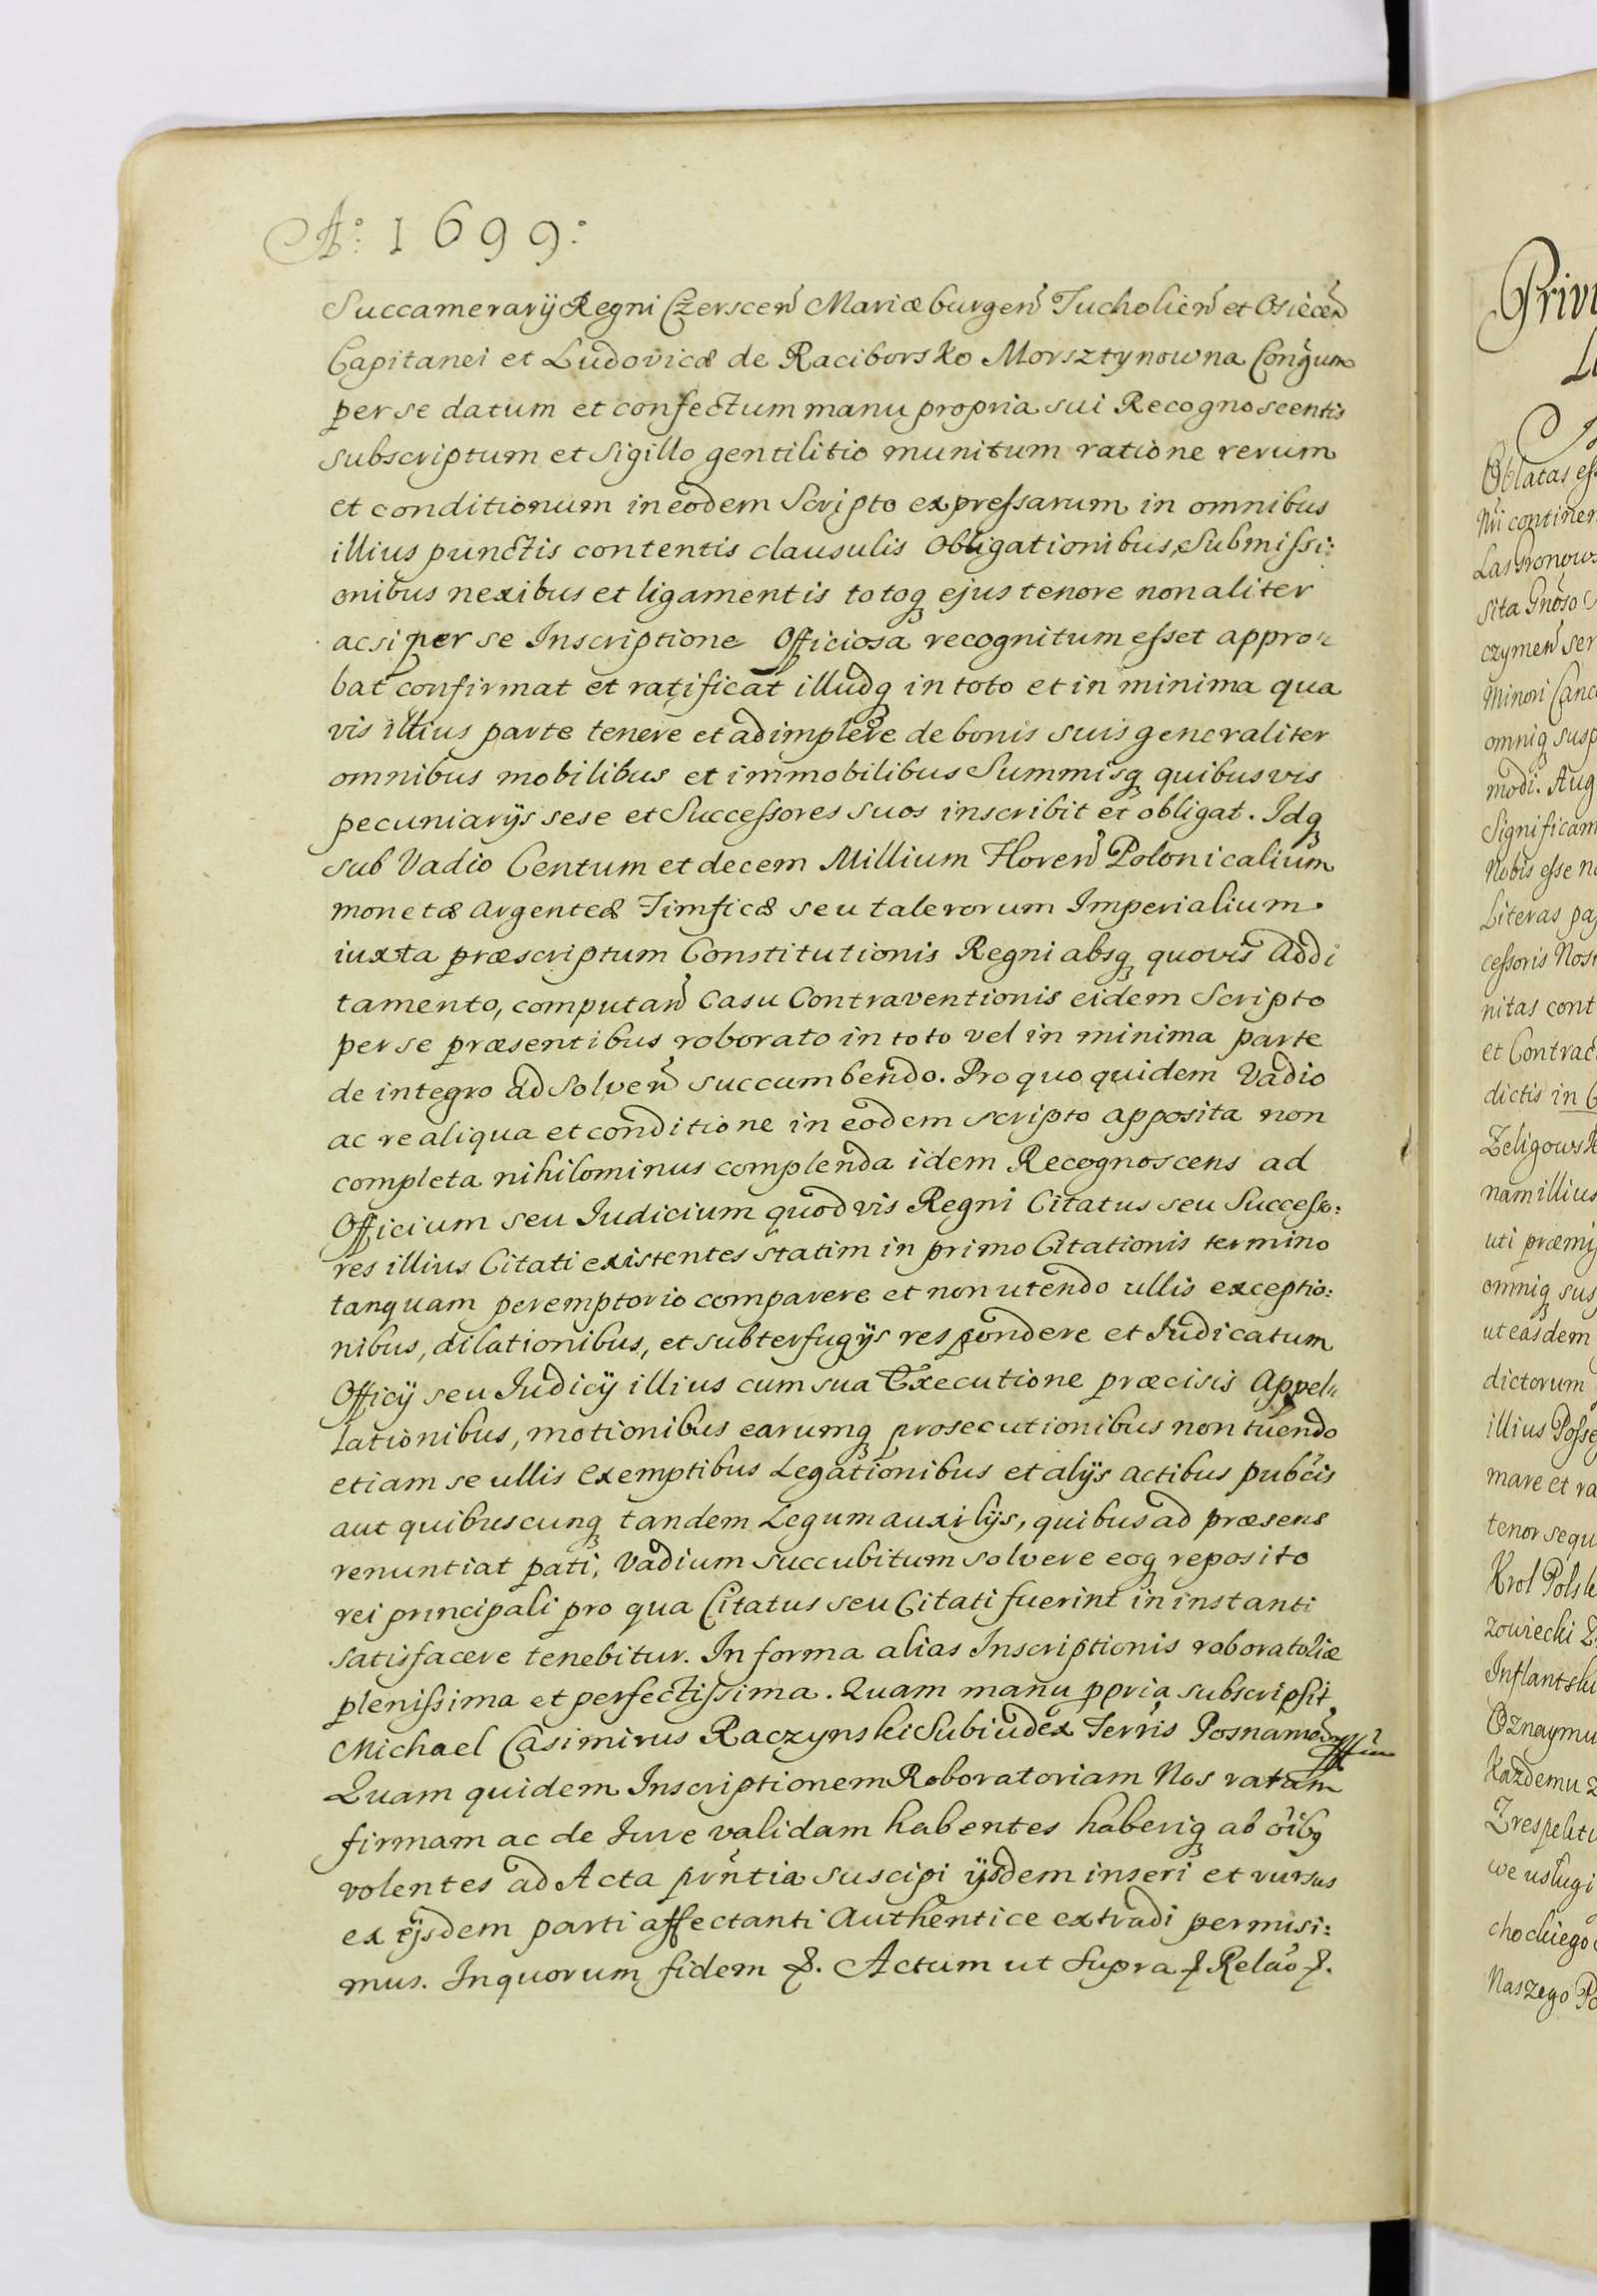 Aº: 1699:
Succamerarij Regni Czerscen̄ Mariæburgen̄ Tucholien̄ et Osiecen̄
Capitanei et Ludovicæ de Raciborsko Morsztynowna Conĝum
per se datum et confectum manu propria sui Recognoscentis
subscriptum et Sigillo gentilitio munitum ratione rerum
et conditionum in eodem Scripto expreſsarum in omnibus
illius punctis contentis clausulis Obligationibus, Submiſsi:
onibus nexibus et ligamentis totoq ejus tenore non aliter
ac si per se Inscriptione Officiosa recognitum eſset appro„
bat confirmat et ratificat illudq in toto et in minima qua
vis illius parte tenere et adimplere de bonis suis generaliter
omnibus mobilibus et immobilibus Summisq quibusvis
pecuniarijs sese et Succeſsores suos inscribit et obligat. Idq
sub Vadio Centum et decem Millium Floren̄ Polonicalium
monetæ argenteæ Timficæ seu talerorum Imperialium
iuxta præscriptum Constitutionis Regni absq quovis addi
tamento, computan̄ Casu Contraventionis eidem Scripto
per se præsentibus roborato in toto vel in minima parte
de integro ad Solven̄ succumbendo. Pro quo quidem Vadio
ac re aliqua et conditione in eodem scripto apposita non
completa nihilominus complenda idem Recognoscens ad
Officium seu Iudicium quodvis Regni Citatus seu Succeſso:
res illius Citati existentes statim in primo Citationis termino
tanquam peremptorio comparere et non utendo ullis exceptio:
nibus, dilationibus, et subterfugijs respondere et Iudicatum
Officij seu Iudicij illius cum sua Executione præcisis Appel„
lationibus, motionibus earumq prosecutionibus non tuendo
etiam se ullis exemptibus Legationibus et alijs actibus pub̄cis
aut quibuscunq tandem Legum auxilijs, quibus ad præsens
renuntiat pati, Vadium succubitum solvere eoq reposito
rei principali pro qua Citatus seu Citati fuerint in instanti
satisfacere tenebitur. In forma alias Inscriptionis roboratoliæ
pleniſsima et perfectiſsima. Quam manu ppria subscripsit
Michael Casimirus Raczynski Subiudex Terris
Quam quidem Inscriptionem Roboratoriam Nos ratam
firmam ac de Iure validam habentes haberiq ab oīb9
volentes ad Acta prn̄tia suscipi ijsdem inseri et rursus
ex ijsdem parti affectanti Authentice extradi permisi:
mus. In quorum fidem &. Actum ut supra & Relaō &.
Privi
Oblatas eſs
continen
sita Gnōso
czymen̄ ser
Minori Canc
omniq susp
modi. Aug
Significam
Nobis eſse n
Literas pa
ceſsoris Nos
nitas cont
et Contrac
dictis in
Zeligowsk
nam illius
uti præmi
omniq sus
ut easdem
dictorum
illius Poſse
mare et ra
tenor sequ
Krol Polsk
zowiecki
Inflantski
Oznaymu
Kazdemu z
Zrespektu
we uslugi
chockiego
Naszego Po